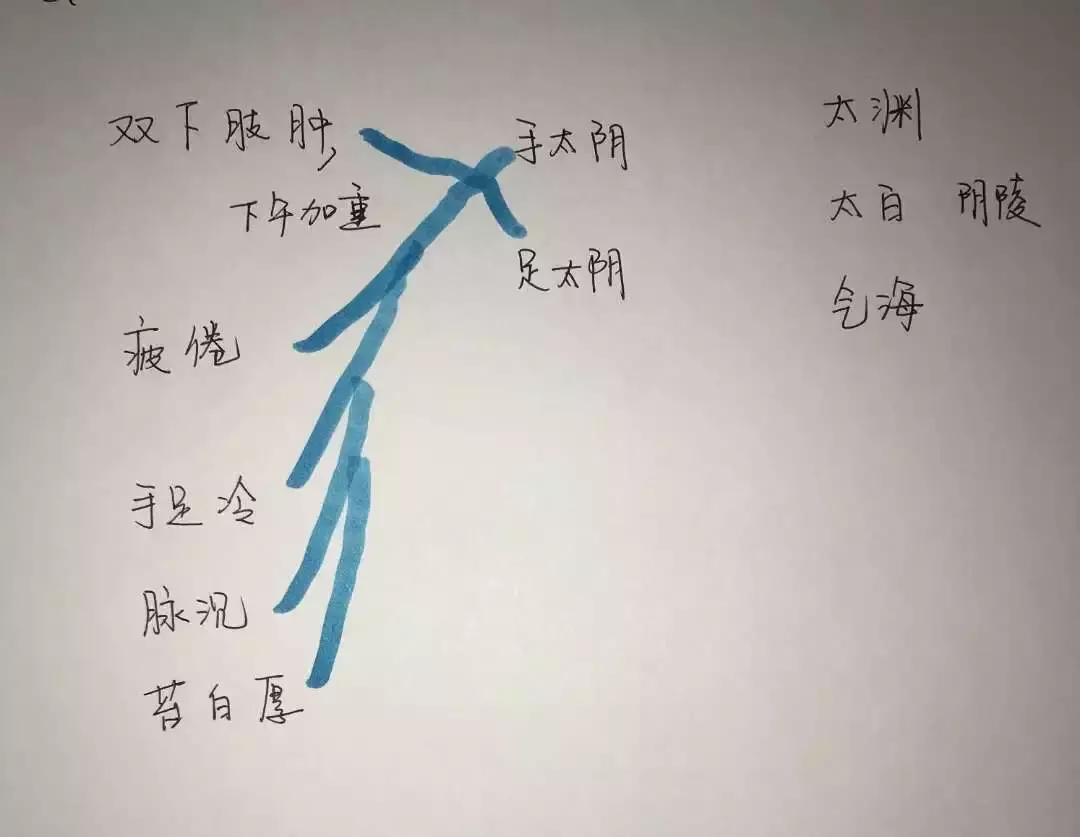 双下肢肿,
下午加重
疲倦
手足冷
脉沉
苔白厚
手太阴
足太阴
太渊
太白 阴陵
气海